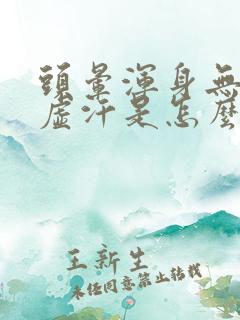 頭暈渾身無
虛汗是怎麼
王新生
未经同意禁止转载